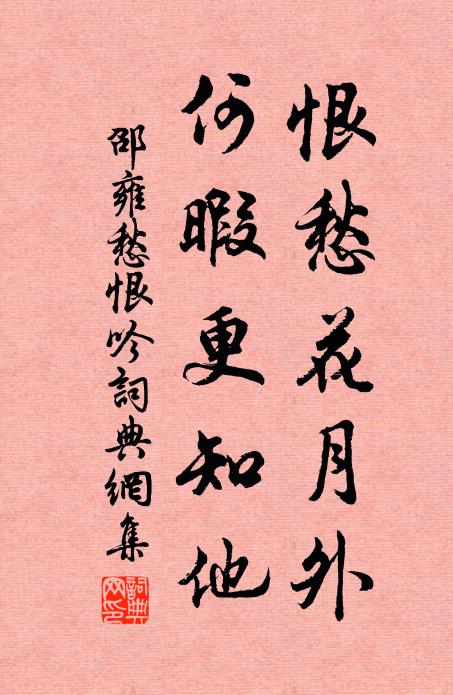 恨愁花月外
何暇更知他
邵雍愁恨吟詞典網集
詞典網印